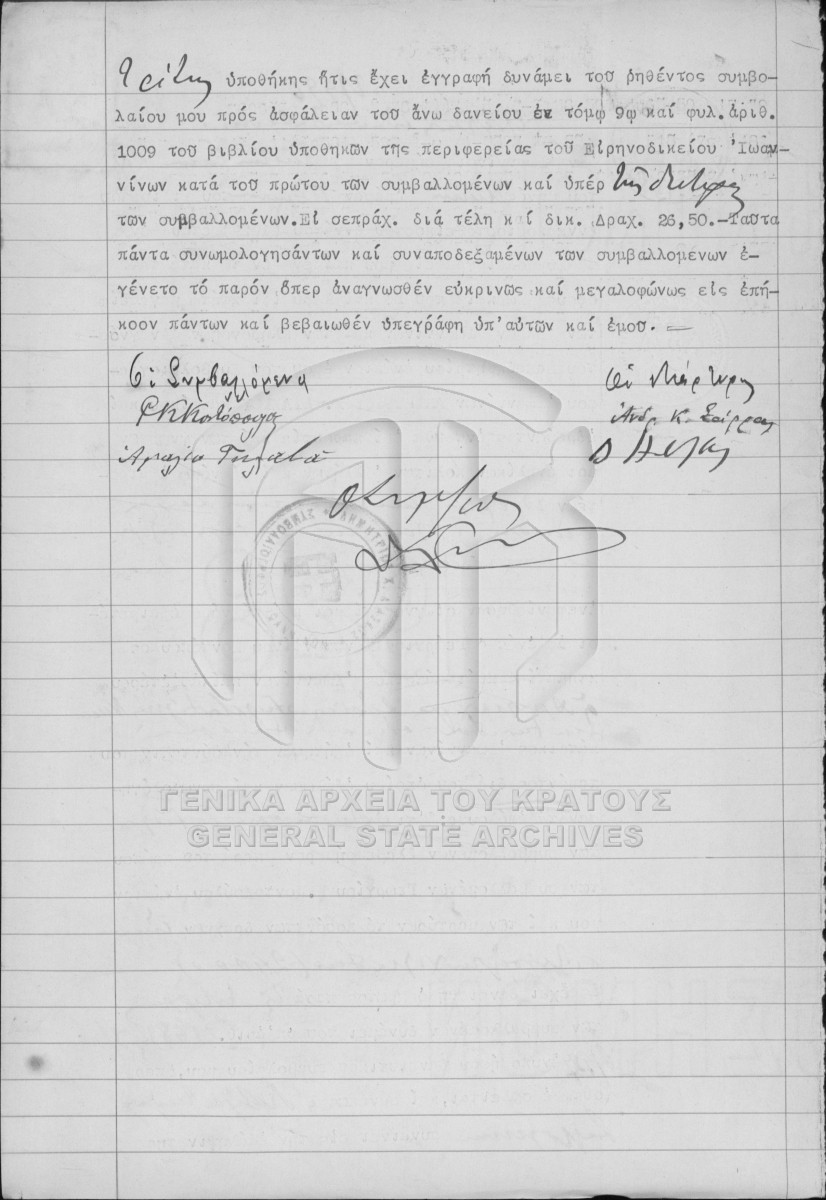 τρίτης ὑποθήκης ἥτις ἔχει ἐγγραφῆ δυνάμει τοῦ ρηθέντος συμβο-
λαίου μου πρός ἀσφάλειαν τοῦ ἄνω δανείου ἐν τόμῳ 9ῳ καί φυλ.ἀριθ.
1009 τοῦ βιβλίου ὑποθηκῶν τῆς περιφερείας τοῦ Εἰρηνοδικείου Ἰωαν-
νίνων κατά τοῦ πρώτου τῶν συμβαλλομένων καί ὑπέρ τῆς δευτέρας
τῶν συμβαλλομένων.Εἰσεπράχ. διά τέλη κ ί δικ. Δραχ. 26,50.-Ταῦτα
πάντα συνωμολογησάντων καί συναποδεξαμένων τῶν συμβαλλομένων ἐ-
γένετο τό παρόν ὅπερ ἀναγνωσθέν εὐκρινῶς καί μεγαλοφώνως εἰς ἐπή-
κοον πάντων καί βεβαιωθέν ὑπεγράφη ὑπ'αὐτῶν καί ἐμοῦ.
Οἱ Συμβαλλόμενοι
Οἱ Μάρτυρες
Ἀνδρ. Κ.
Ἀμαλία
ΓΕΝΙΚΑ ΑΡΧΕΙΑ ΤΟΥ ΚΡΑΤΟΥΣ
GENERAL STATE ARCHIVES